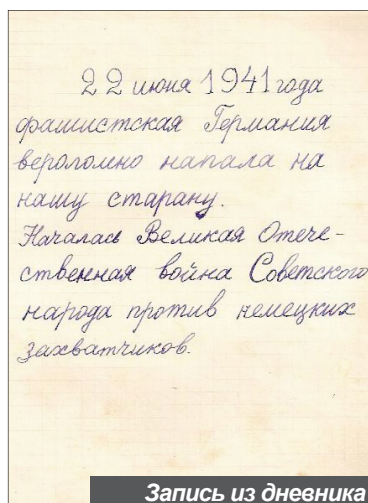 22 июня 1941 года
фашистская Германия
вероломно напала на
нашу старану.
Началась Великая Отече-
ственная война Советского
народа против немецких
захватчиков.
Запись из дневника